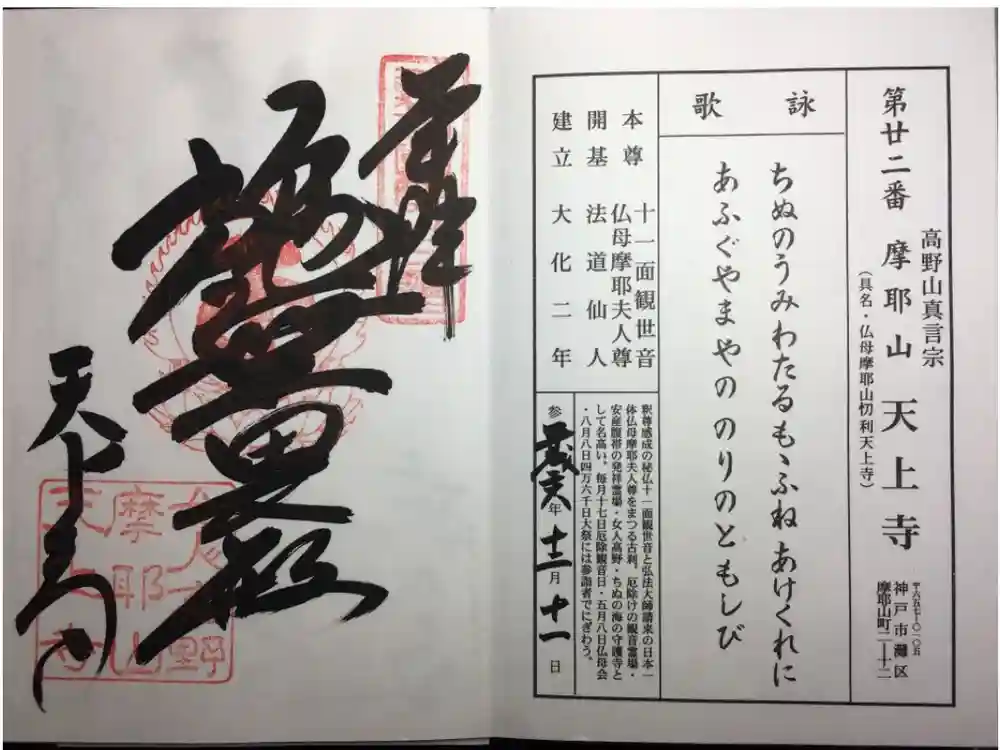 高野山真言宗
第廿二番 摩耶山 天上寺
(具名・仏母摩耶山忉利天上寺)
〒六五七―〇一〇五
神戸市灘区
摩耶山町二―十二
詠歌
ちぬのうみわたるもゝふね あけくれに
あふぐやまやの のりのともしび
本尊 十一面観世音
仏母摩耶夫人尊
開基 法道仙人
建立 大化二年
釈尊感成の秘仏十一面観世音と弘法大師請来の日本一
体仏母摩耶夫人尊をまつる古刹。厄除けの観音霊場・
安産腹帯の発祥霊場・女人高野・ちぬの海の守護寺と
して名高い。毎月十七日厄除観音日・五月八日仏母会
・八月八日四万六千日大祭には参詣者でにぎわう。
年 十二 月 十一 日
奉拝
天上寺
女人高野
摩耶山
天上寺